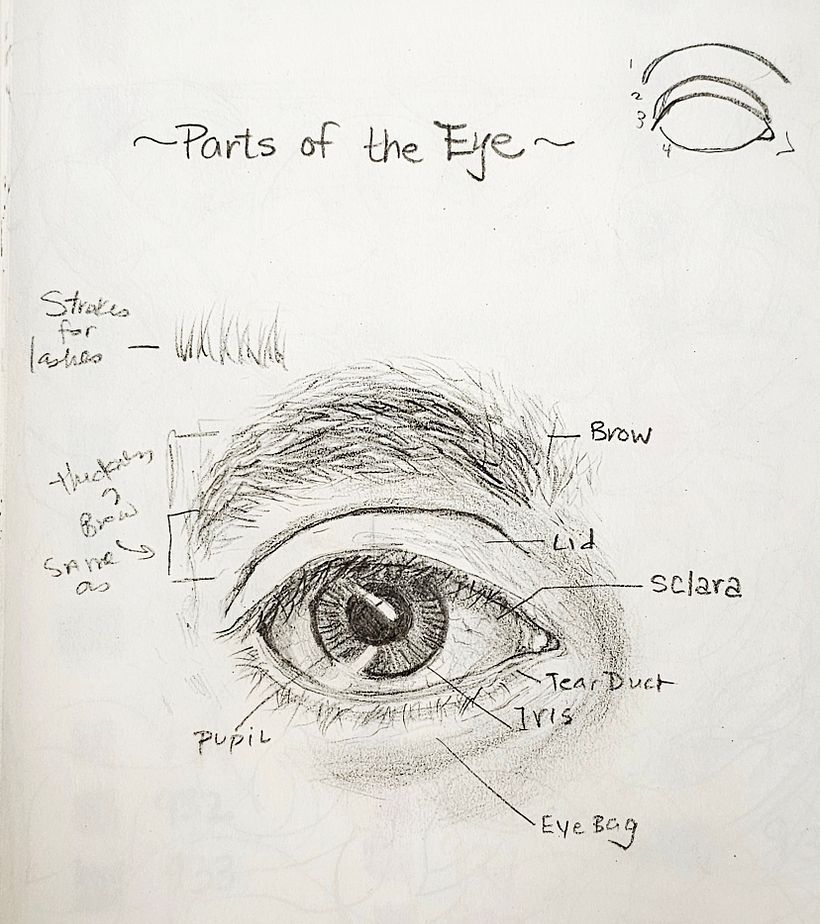 ~Parts of the Eye~
1
2
3
4
Strokes
for
lashes
Brow
thickness
Brow
Same
as
Lid
Sclara
Tear Duct
Iris
Pupil
Eye Bag